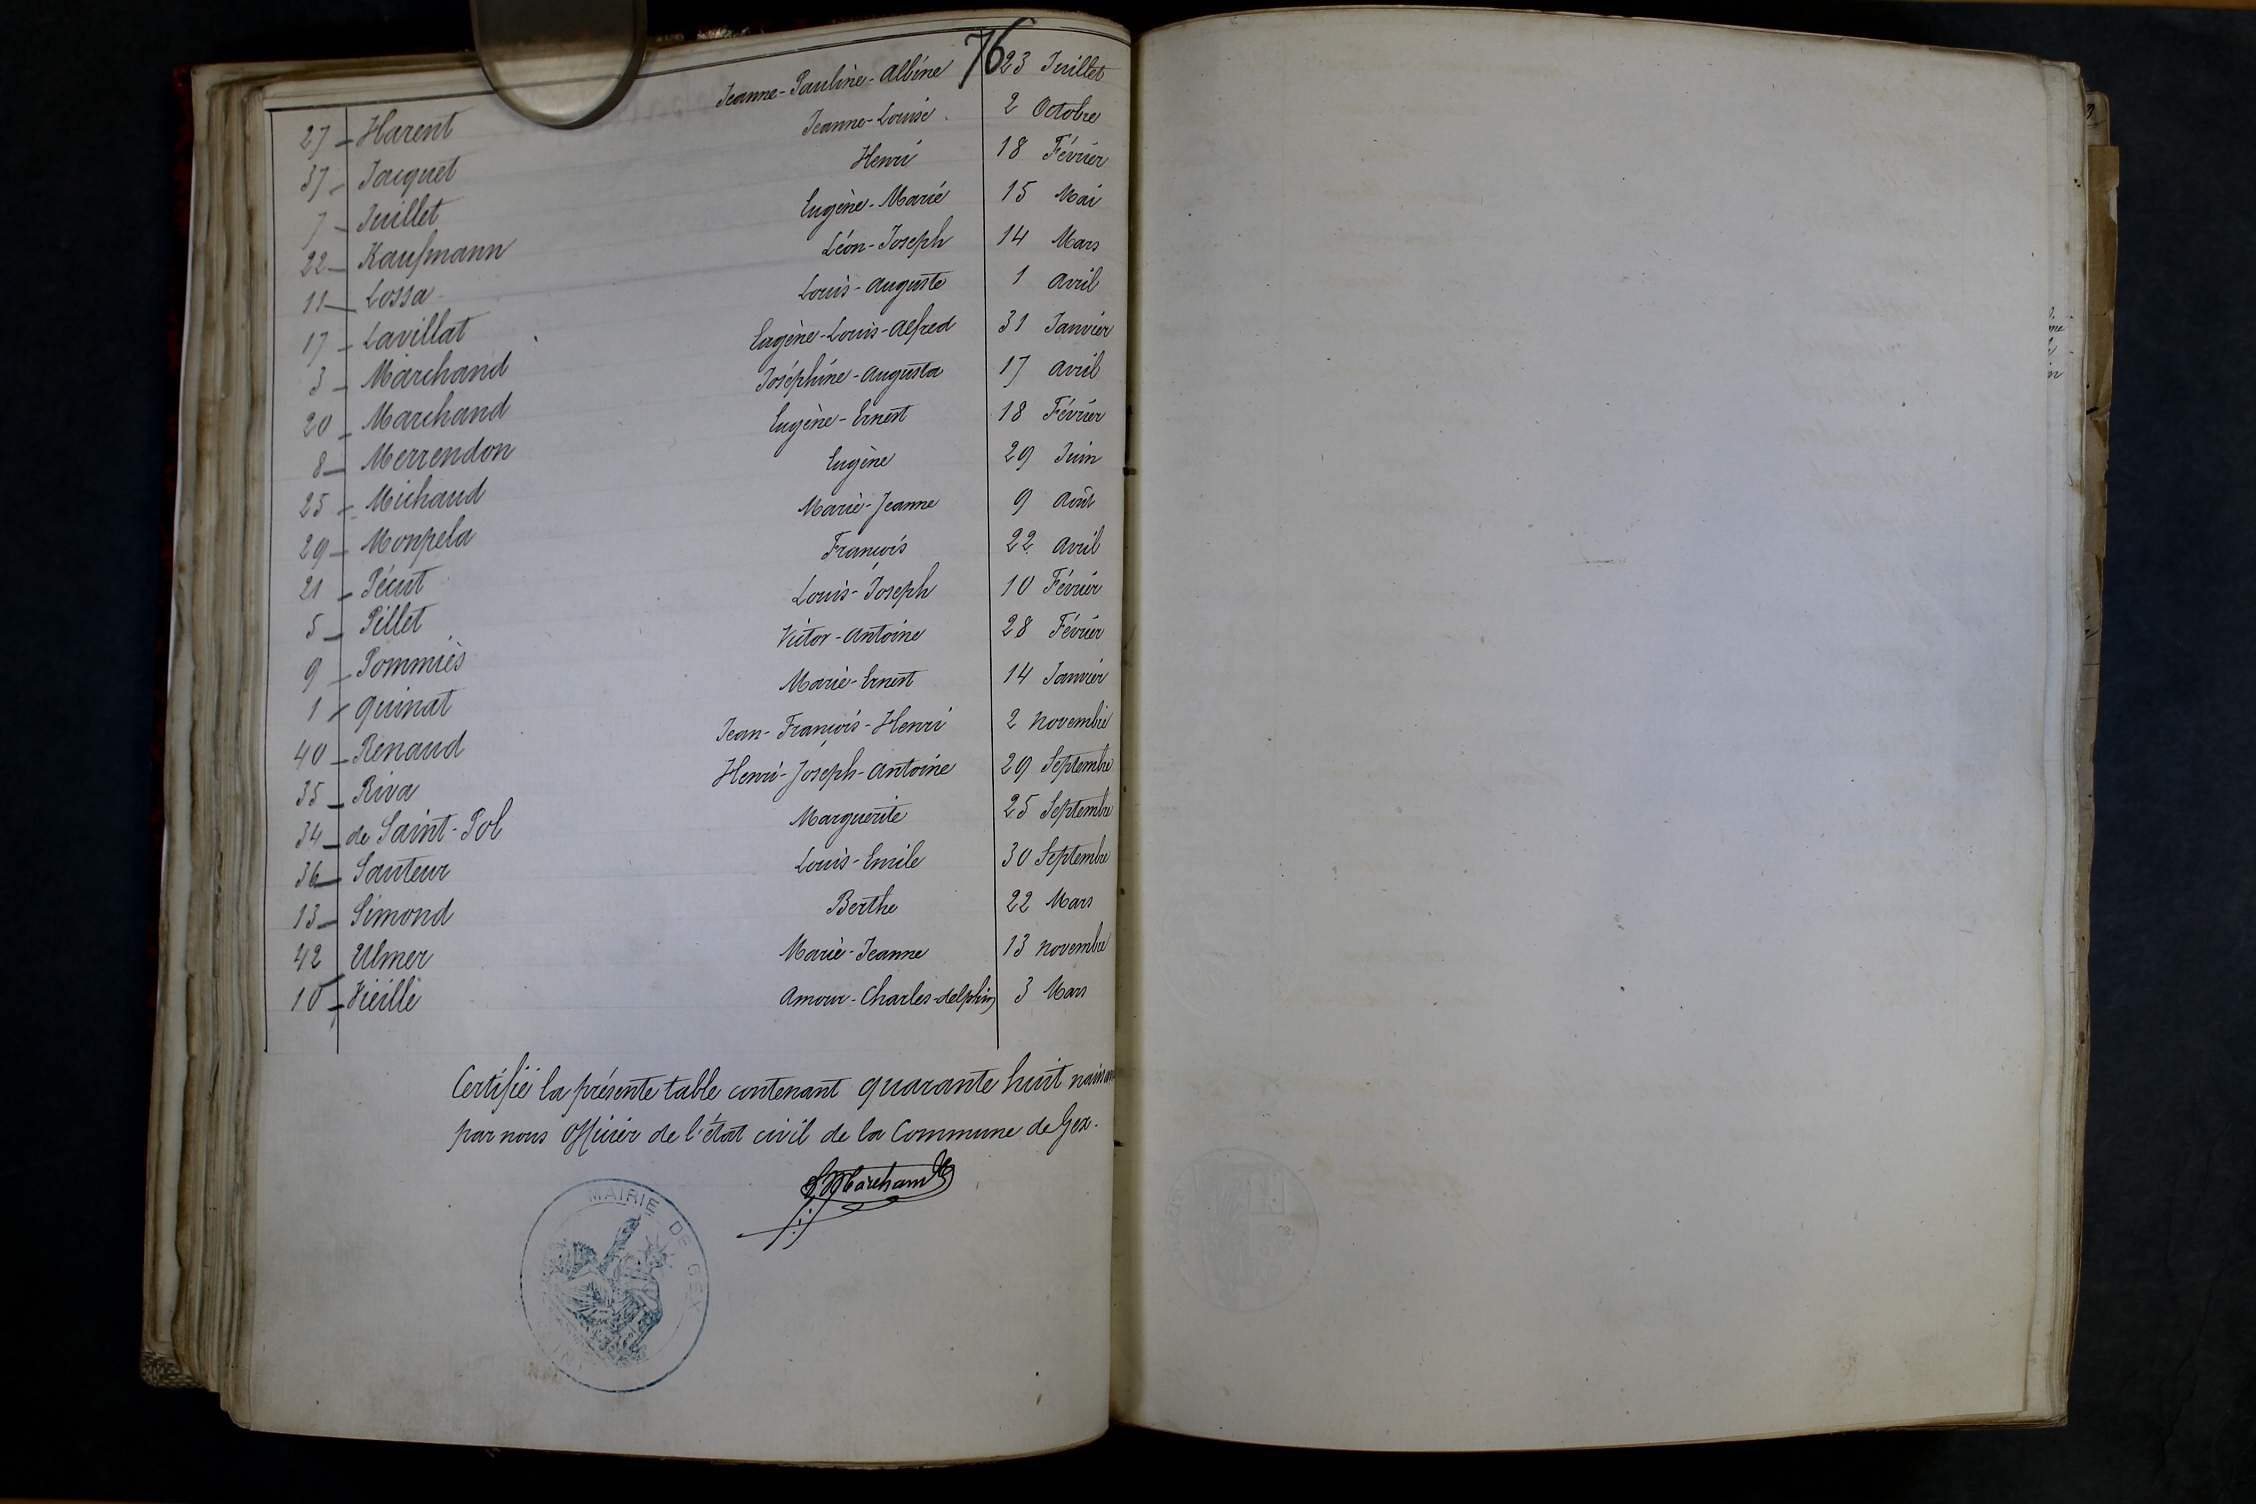 76
27 Harent Jeanne-Pauline-Albine 23 Juillet
37 Jacquet Jeanne-Louise 2 Octobre
7 Juillet Henri 18 Février
22 Kaufmann Eugène-Marie 15 Mai
11 Lossa Léon-Joseph 14 Mars
17 Lavillat Louis-Auguste 1 Avril
3 Marchand Eugène-Louis-Alfred 31 Janvier
20 Marchand Joséphine-Augusta 17 Avril
8 Merrendon Eugène-Ernest 18 Février
25 Michaud Eugène 29 Juin
29 Monpela Marie-Jeanne 9 Août
21 Pécut François 22 Avril
5 Pillet Louis-Joseph 10 Février
9 Pommiès Victor-Antoine 28 Février
1 Quinat Marie-Ernest 14 Janvier
40 Renaud Jean-François-Henri 2 Novembre
35 Riva Henri-Joseph-Antoine 29 Septembre
34 de Saint-Pol Marguerite 25 Septembre
36 Sauteur Louis-Emile 30 Septembre
13 Simond Berthe 22 Mars
42 Ulmer Marie-Jeanne 13 Novembre
10 Vieille Amour-Charles-delphin 3 Mars
Certifié la présente table contenant quarante huit
par nous Officier de l'état civil de la Commune de Gex.
Marchand
MAIRIE DE GEX